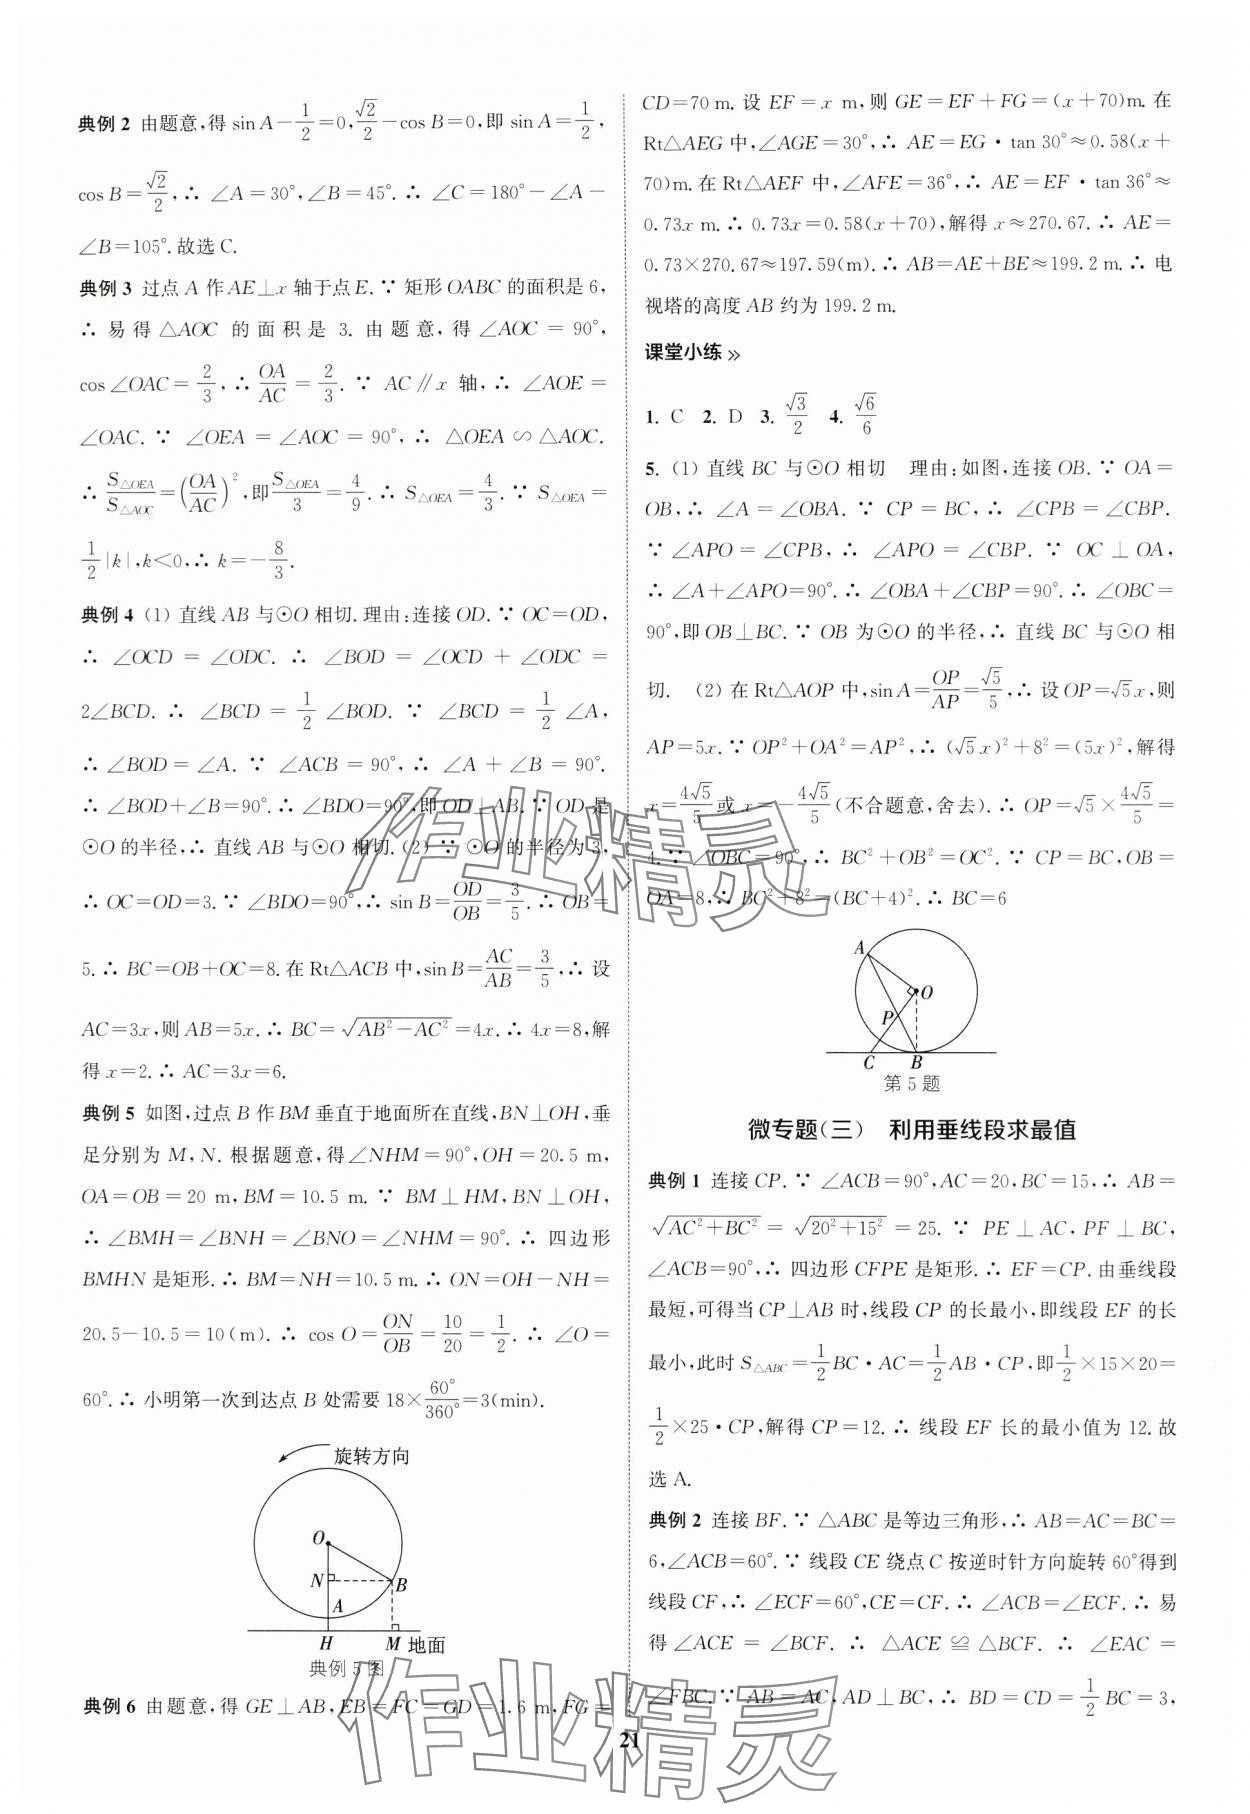 典例 2 由题意,得 sin A−1/2=0,√2/2−cos B=0,即 sin A=1/2,
cos B=√2/2,∴ ∠A=30°,∠B=45°.∴ ∠C=180°−∠A−
∠B=105°.故选 C.
典例 3 过点 A 作 AE⊥x 轴于点 E.∵ 矩形 OABC 的面积是 6,
∴ 易得 △AOC 的面积是 3. 由题意,得 ∠AOC = 90°,
cos∠OAC=2/3,∴ OA/AC=2/3.∵ AC∥x 轴,∴ ∠AOE=
∠OAC.∵ ∠OEA=∠AOC=90°,∴ △OEA∽△AOC.
∴ S△OEA/S△AOC=(OA/AC)²,即S△OEA/3=4/9.∴ S△OEA=4/3.∵ S△OEA=
1/2|k|,k<0,∴ k=−8/3.
典例 4 (1) 直线 AB 与⊙O 相切.理由:连接 OD.∵ OC=OD,
∴ ∠OCD = ∠ODC. ∴ ∠BOD = ∠OCD + ∠ODC =
2∠BCD. ∴ ∠BCD = 1/2 ∠BOD. ∵ ∠BCD = 1/2 ∠A,
∴ ∠BOD=∠A.∵ ∠ACB=90°,∴ ∠A+∠B=90°.
∴ ∠BOD+∠B=90°.∴ ∠BDO=90°,即 OD⊥AB.∵ OD 是
⊙O 的半径,∴ 直线 AB 与⊙O 相切.(2) ∵ ⊙O 的半径为 3,
∴ OC=OD=3.∵ ∠BDO=90°,∴ sin B=OD/OB=3/5.∴ OB=
5.∴ BC=OB+OC=8.在 Rt△ACB 中,sin B=AC/AB=3/5,∴ 设
AC=3x,则 AB=5x.∴ BC=√(AB²−AC²)=4x.∴ 4x=8,解
得 x=2.∴ AC=3x=6.
典例 5 如图,过点 B 作 BM 垂直于地面所在直线,BN⊥OH,垂
足分别为 M,N. 根据题意,得∠NHM=90°,OH=20.5 m,
OA=OB=20 m,BM=10.5 m.∵ BM⊥HM,BN⊥OH,
∴ ∠BMH=∠BNH=∠BNO=∠NHM=90°.∴ 四边形
BMHN 是矩形.∴ BM=NH=10.5 m.∴ ON=OH−NH=
20.5−10.5=10(m).∴ cos O=ON/OB=10/20=1/2.∴ ∠O=
60°.∴ 小明第一次到达点 B 处需要 18×60°/360°=3(min).
旋转方向
O
N
B
A
H
M 地面
典例 5 图
典例 6 由题意,得 GE⊥AB,EB=FC=GD=1.6 m,FG=
CD=70 m.设 EF=x m,则 GE=EF+FG=(x+70)m.在
Rt△AEG 中,∠AGE=30°,∴ AE=EG·tan 30°≈0.58(x+
70)m.在 Rt△AEF 中,∠AFE=36°,∴ AE=EF·tan 36°≈
0.73x m.∴ 0.73x=0.58(x+70),解得 x≈270.67.∴ AE=
0.73×270.67≈197.59(m).∴ AB=AE+BE≈199.2 m.∴ 电
视塔的高度 AB 约为 199.2 m.
课堂小练 »
1. C 2. D 3. √3/2 4. √6/6
5. (1) 直线 BC 与⊙O 相切 理由:如图,连接 OB.∵ OA=
OB,∴ ∠A=∠OBA.∵ CP=BC,∴ ∠CPB=∠CBP.
∵ ∠APO=∠CPB,∴ ∠APO=∠CBP.∵ OC⊥OA,
∴ ∠A+∠APO=90°.∴ ∠OBA+∠CBP=90°.∴ ∠OBC=
90°,即 OB⊥BC.∵ OB 为⊙O 的半径,∴ 直线 BC 与⊙O 相
切. (2) 在 Rt△AOP 中,sin A=OP/AP=√5/5,∴ 设 OP=√5x,则
AP=5x.∵ OP²+OA²=AP²,∴ (√5x)²+8²=(5x)²,解得
x=4√5/5或 x=−4√5/5(不合题意,舍去).∴ OP=√5×4√5/5=
4.∵ ∠OBC=90°,∴ BC²+OB²=OC².∵ CP=BC,OB=
OA=8,∴ BC²+8²=(BC+4)².∴ BC=6
A
O
P
C
B
第 5 题
微专题(三) 利用垂线段求最值
典例 1 连接 CP.∵ ∠ACB=90°,AC=20,BC=15,∴ AB=
√(AC²+BC²)=√(20²+15²)=25.∵ PE⊥AC,PF⊥BC,
∠ACB=90°,∴ 四边形 CFPE 是矩形.∴ EF=CP.由垂线段
最短,可得当 CP⊥AB 时,线段 CP 的长最小,即线段 EF 的长
最小,此时 S△ABC=1/2BC·AC=1/2AB·CP,即1/2×15×20=
1/2×25·CP,解得 CP=12.∴ 线段 EF 长的最小值为 12.故
选 A.
典例 2 连接 BF.∵ △ABC 是等边三角形,∴ AB=AC=BC=
6,∠ACB=60°.∵ 线段 CE 绕点 C 按逆时针方向旋转 60°得到
线段 CF,∴ ∠ECF=60°,CE=CF.∴ ∠ACB=∠ECF.∴ 易
得 ∠ACE = ∠BCF. ∴ △ACE ≌ △BCF. ∴ ∠EAC =
∠FBC.∵ AB=AC,AD⊥BC,∴ BD=CD=1/2BC=3,
21
作业精灵
作业精灵